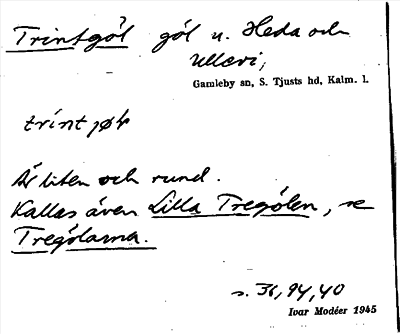 Trintgöl göl u. Heda och
Ullevi,
Gamleby sn, S. Tjusts hd, Kalm. l.
trintjøl
Är liten och rund.
Kallas även Lilla Tregölen, se
Tregölarna.
s. 36, 94, 40
Ivar Modéer 1945